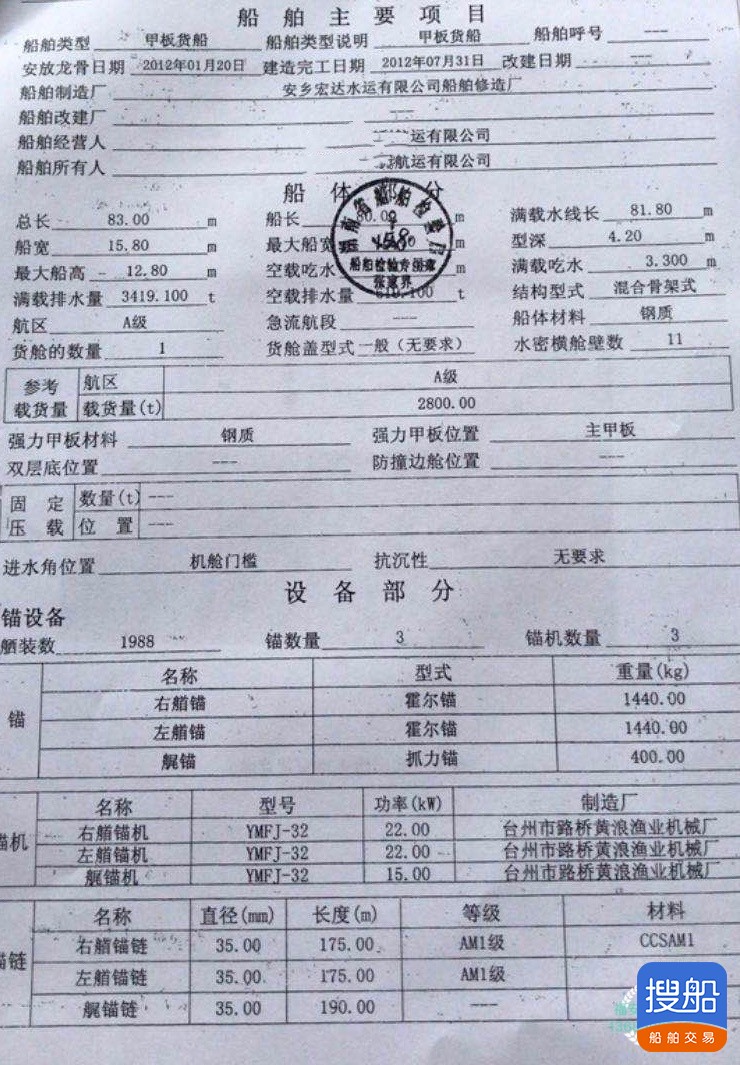 船舶主要项目
船舶类型 甲板货船 船舶类型说明 甲板货船 船舶呼号 ---
安放龙骨日期 2012年01月20日 建造完工日期 2012年07月31日 改建日期 ---
船舶制造厂 安乡宏达水运有限公司船舶修造厂
船舶改建厂 ---
船舶经营人 运有限公司
船舶所有人 航运有限公司
船体部分
总长 83.00 m 船长 80.00 m 满载水线长 81.80 m
船宽 15.80 m 最大船宽 m 型深 4.20 m
最大船高 12.80 m 空载吃水 m 满载吃水 3.300 m
满载排水量 3419.100 t 空载排水量 t 结构型式 混合骨架式
航区 A级 急流航段 --- 船体材料 钢质
货舱的数量 1 货舱盖型式 一般（无要求） 水密横舱壁数 11
船舶检验专用章
张家界
参考载货量 航区 A级
载货量(t) 2800.00
强力甲板材料 钢质 强力甲板位置 主甲板
双层底位置 --- 防撞边舱位置 ---
固定压载 数量(t) ---
位置 ---
进水角位置 机舱门槛 抗沉性 无要求
设备部分
锚设备
舾装数 1988 锚数量 3 锚机数量 3
锚 名称 型式 重量(kg)
右艏锚 霍尔锚 1440.00
左艏锚 霍尔锚 1440.00
艉锚 抓力锚 400.00
锚机 名称 型号 功率(kW) 制造厂
右艏锚机 YMFJ-32 22.00 台州市路桥黄浪渔业机械厂
左艏锚机 YMFJ-32 22.00 台州市路桥黄浪渔业机械厂
艉锚机 YMFJ-32 15.00 台州市路桥黄浪渔业机械厂
锚链 名称 直径(mm) 长度(m) 等级 材料
右艏锚链 35.00 175.00 AM1级 CCSAM1
左艏锚链 35.00 175.00 AM1级
艉锚链 35.00 190.00 ---
搜船
船舶交易